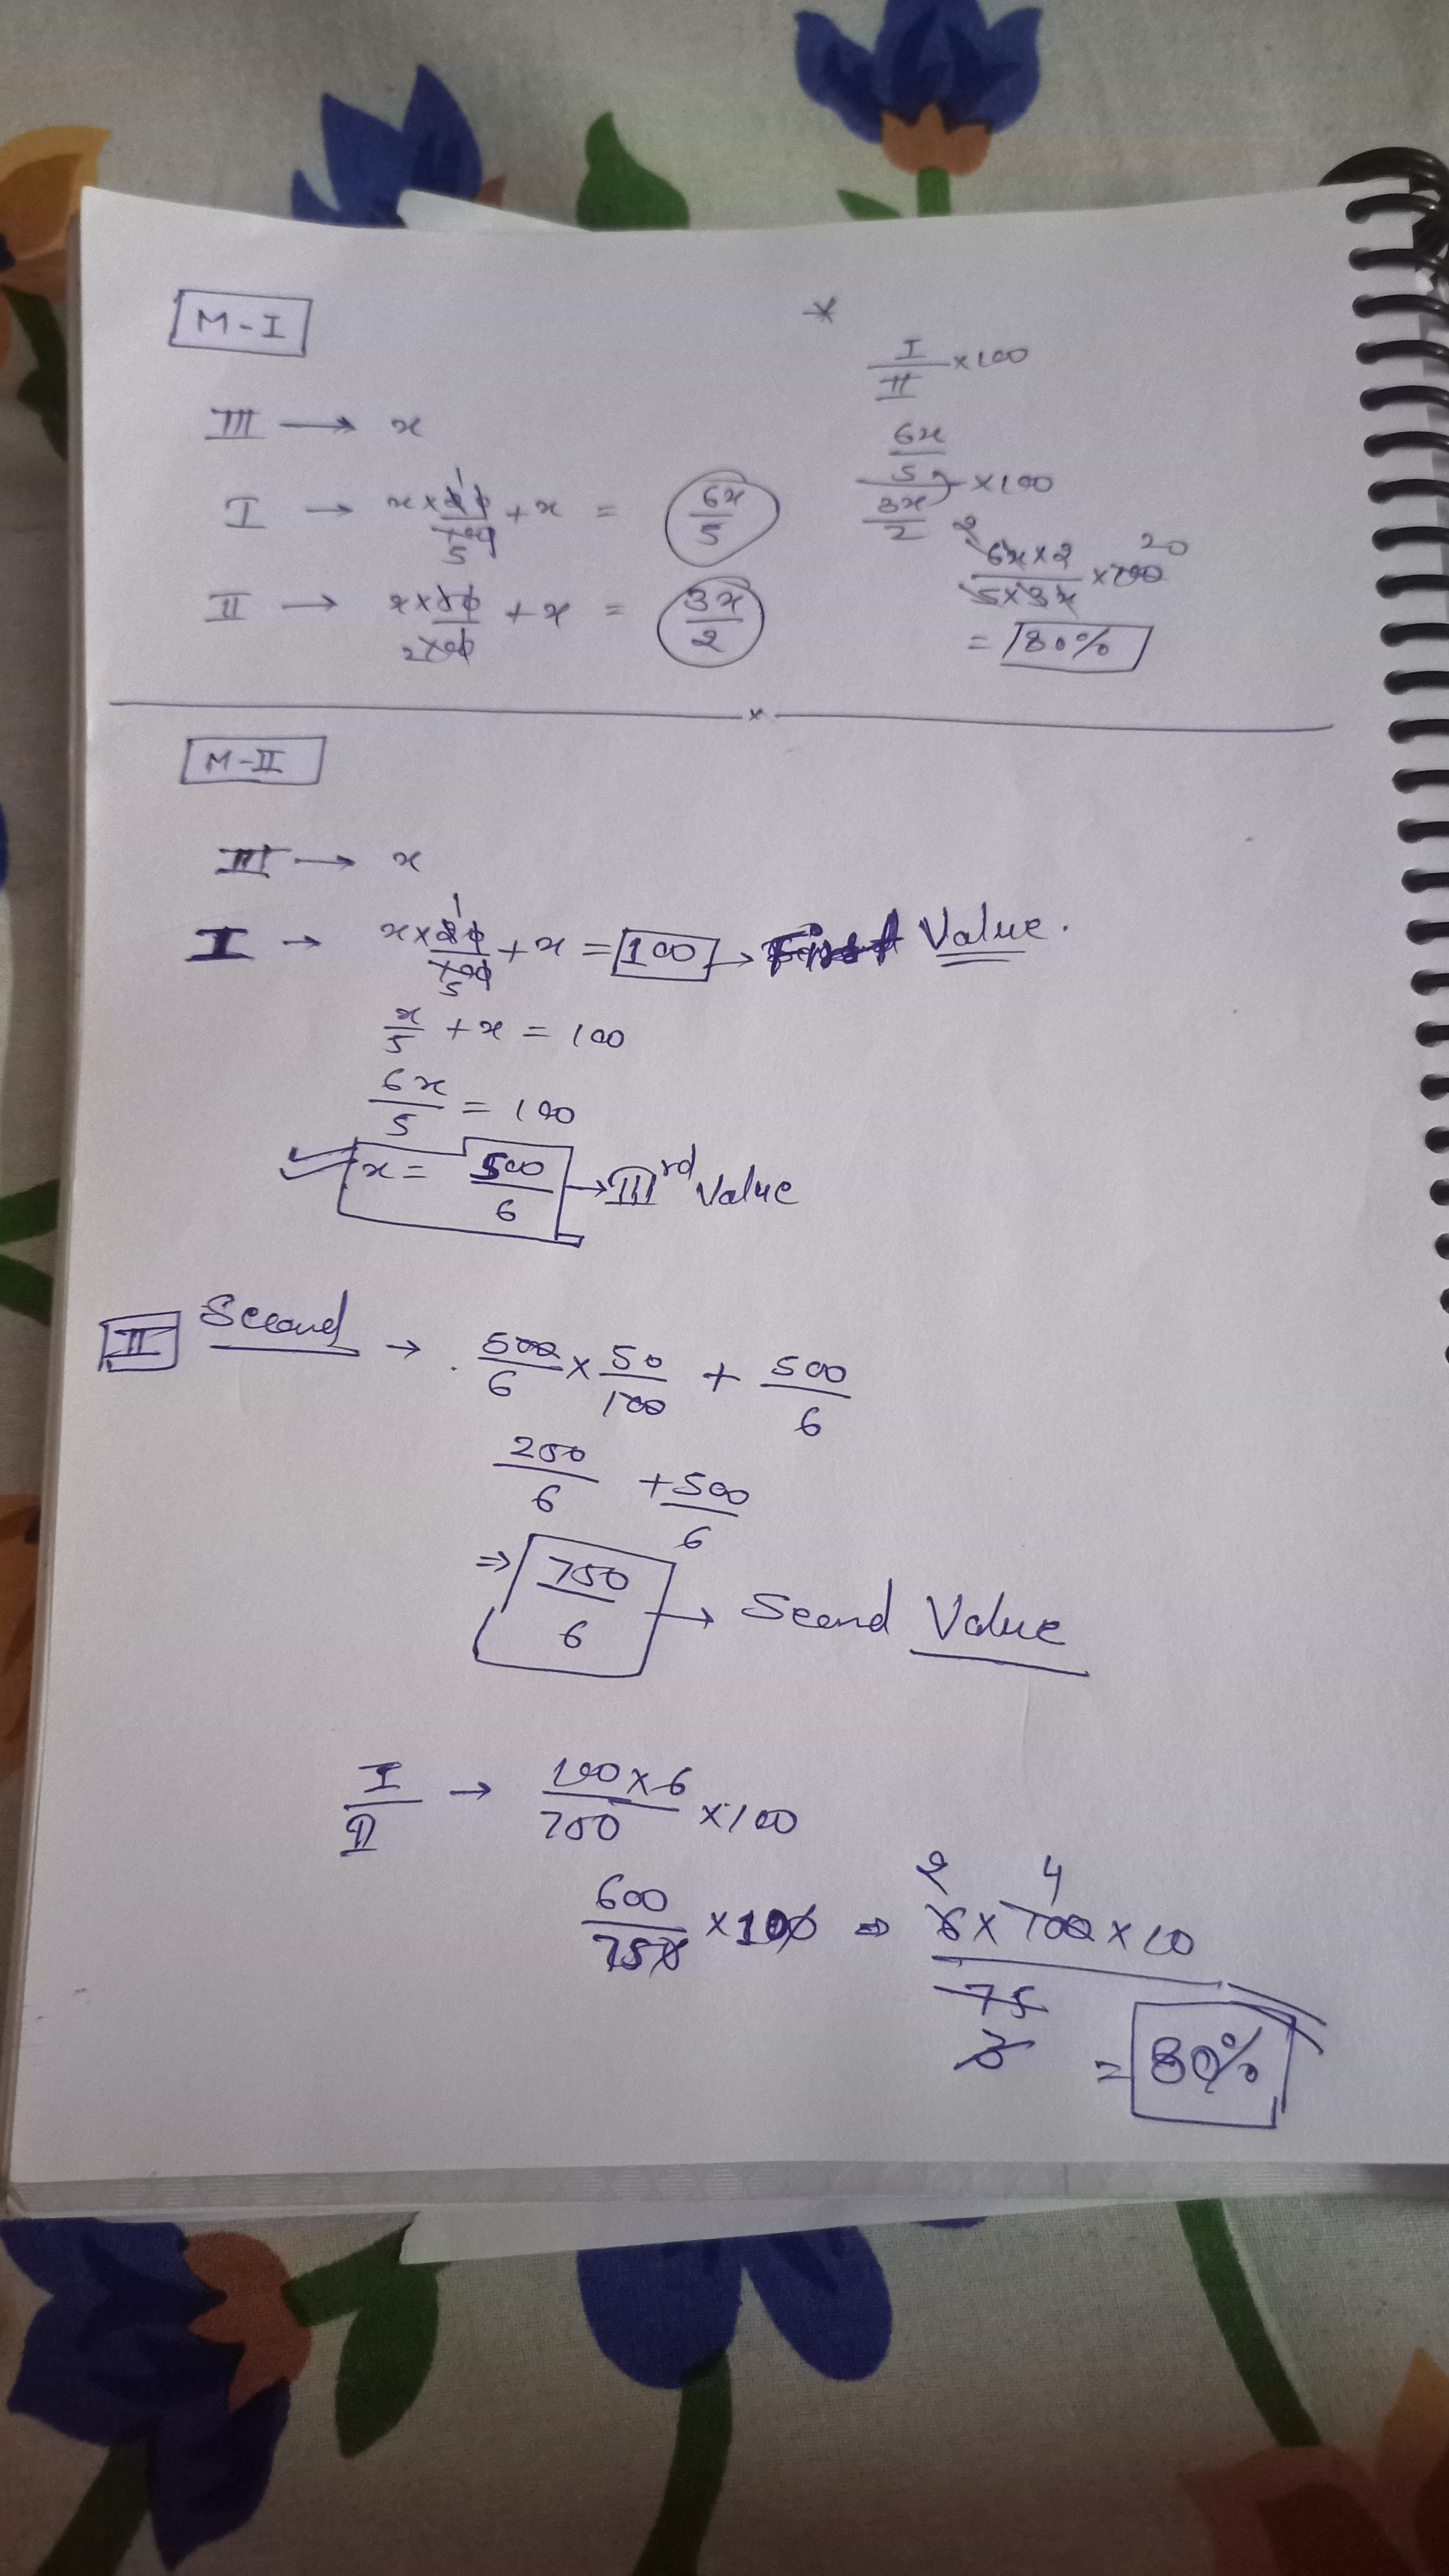 M-I
III → x
I → x×20/100 + x = 6x/5
1
5
II → x×50/100 + x = 3x/2
2
*
I/II ×100
6x/5 / 3x/2 ×100
2 20
6x×2/5×3x ×100
= 80%
x
M-II
III → x
I → x×20/100 + x = 100 → First Value.
1
5
x/5 + x = 100
6x/5 = 100
x = 500/6 → IIIrd Value
II Second → 500/6 × 50/100 + 500/6
250/6 + 500/6
⇒ 750/6 → Second Value
I/II → 100×6/750 ×100
2 4
600/750 ×100 ⇒ 6×100×10/75
3
= 80%